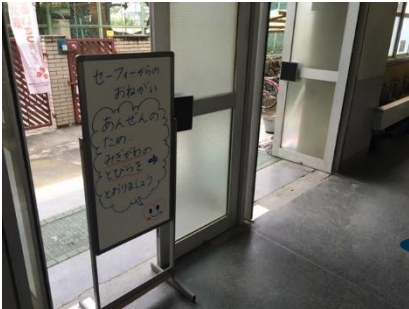 セーフィーからの
おねがい
あんぜんの
ため、
みぎがわの
とびらを➡
とおりましょう